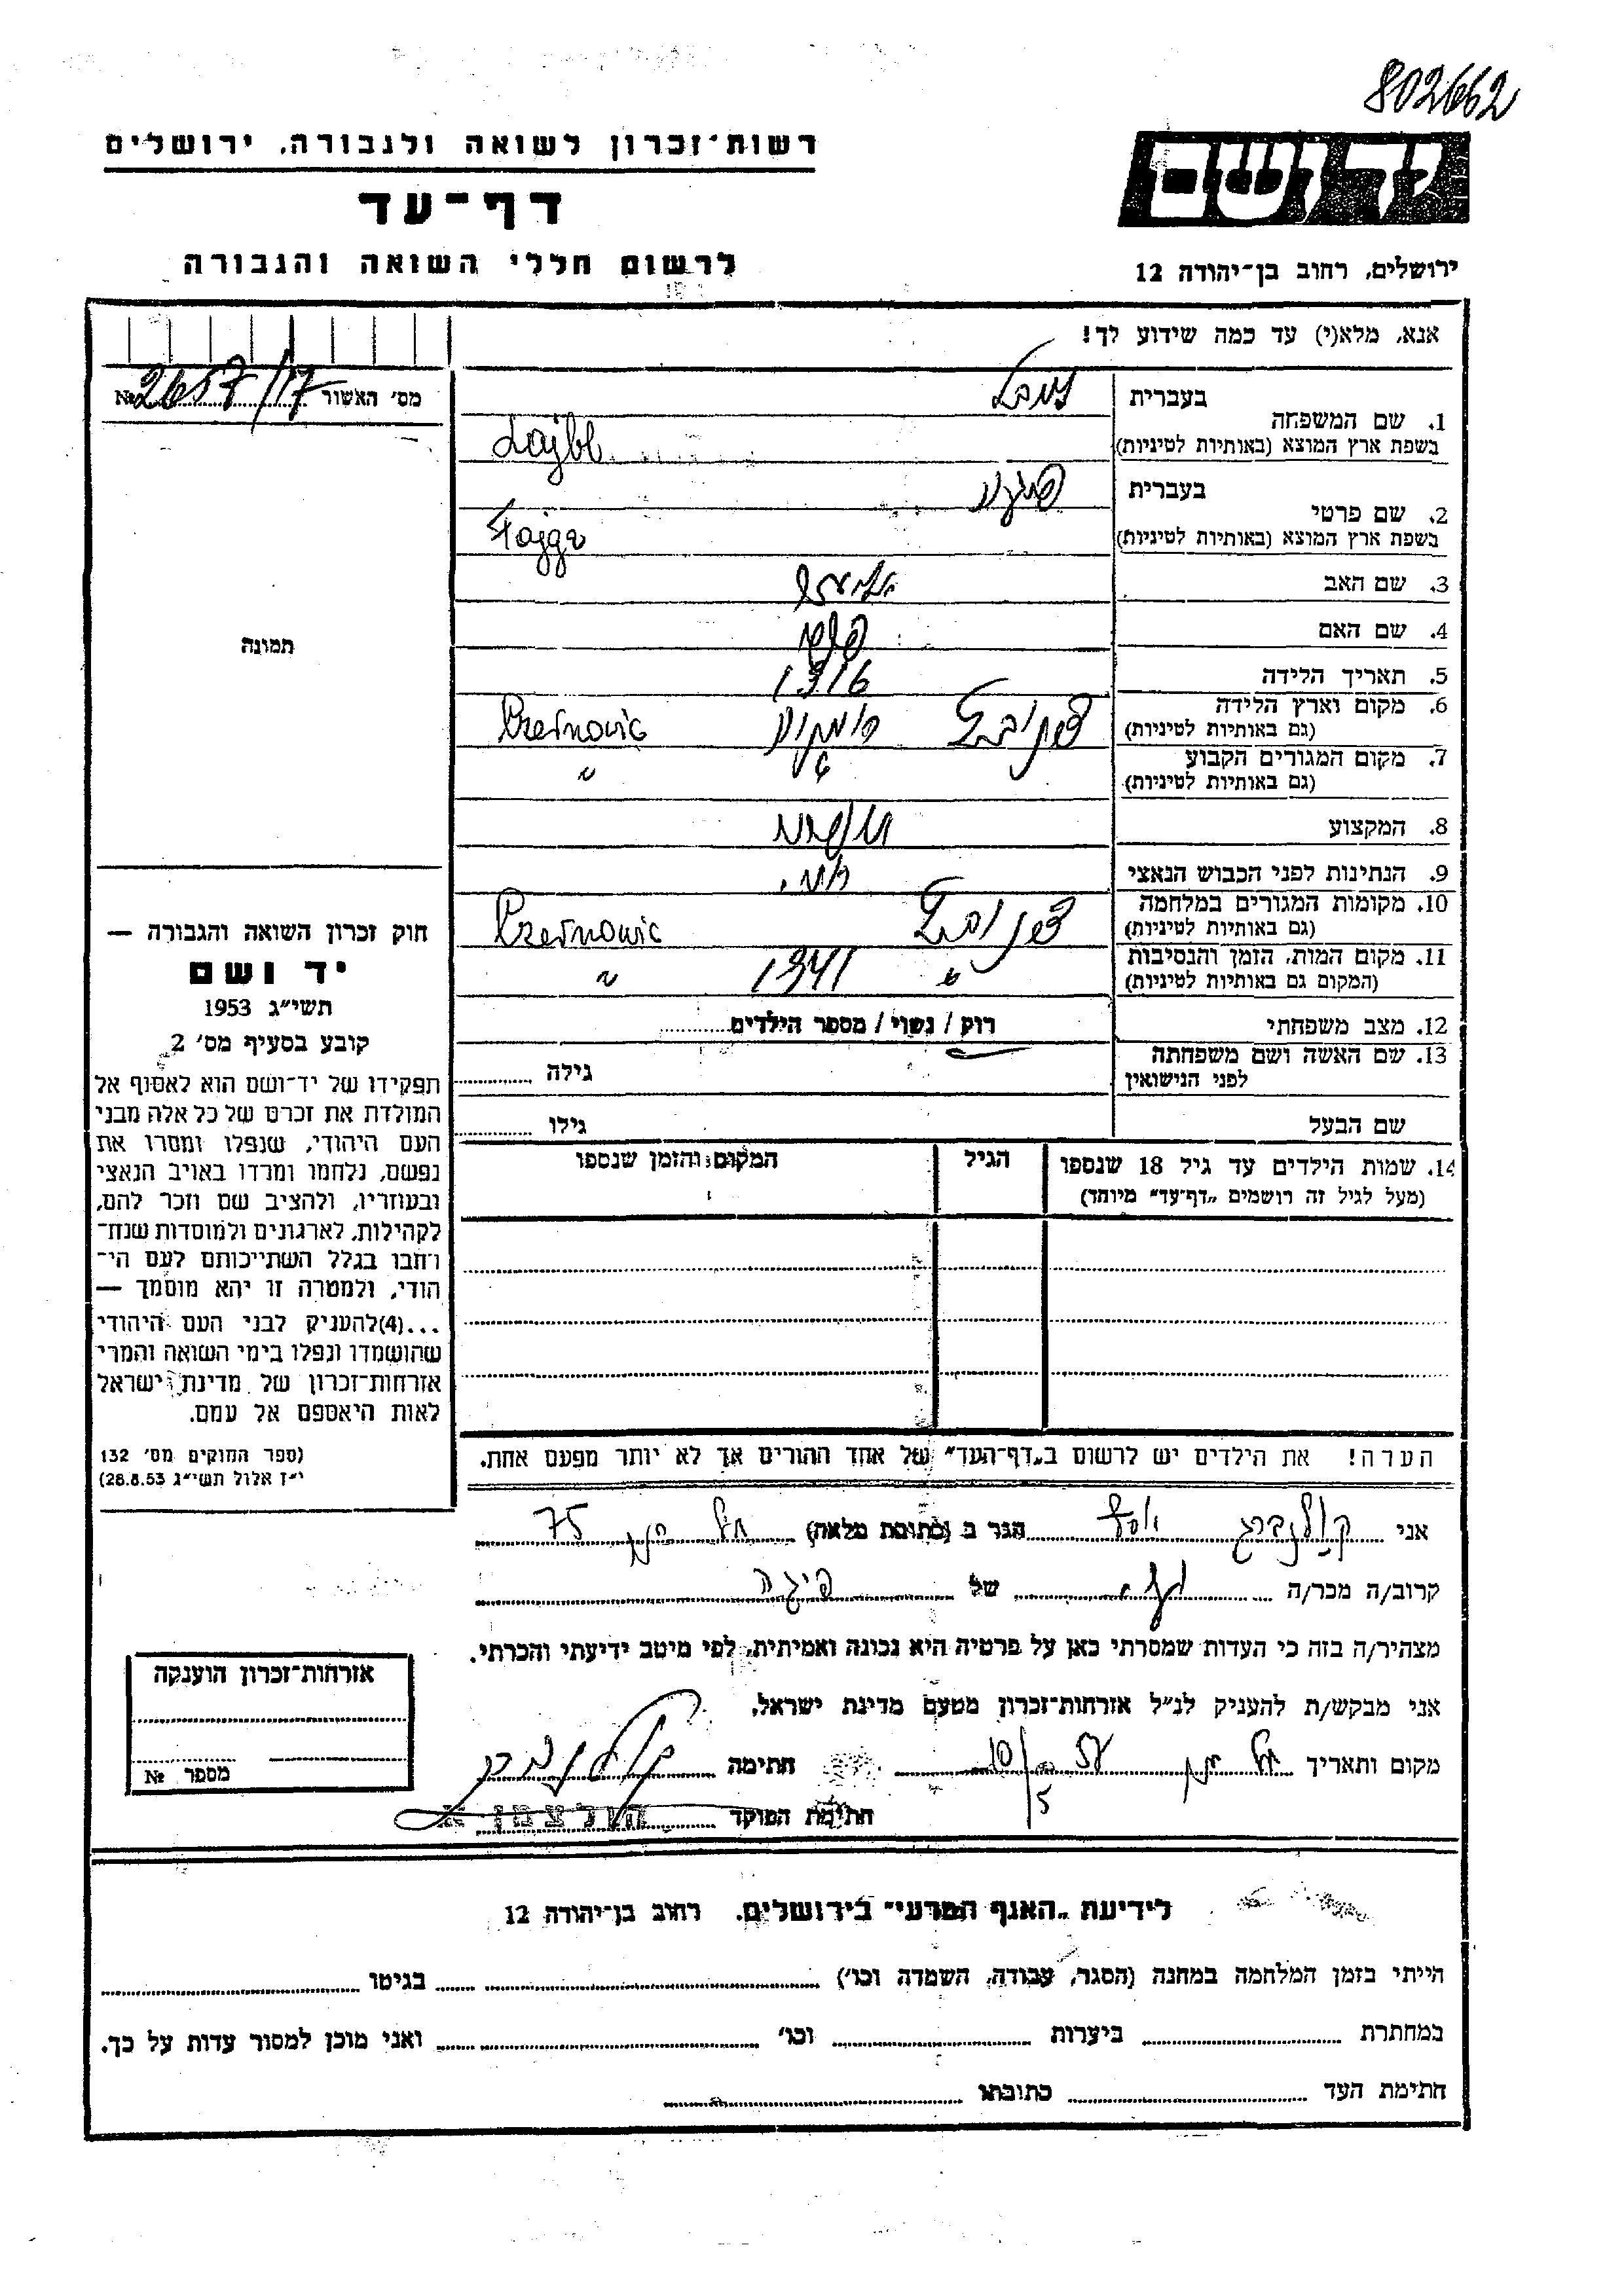 802662
יד ושם
רשות־זכרון לשואה ולגבורה, ירושלים
דף־עד
לרשום חללי השואה והגבורה
ירושלים, רחוב בן־יהודה 12
אנא, מלא(י) עד כמה שידוע לך!
מס׳ האשור 2657/17 №
בעברית
1. שם המשפחה
בשפת ארץ המוצא (באותיות לטיניות) Lajbl
בעברית
2. שם פרטי
בשפת ארץ המוצא (באותיות לטיניות) Fajga
3. שם האב
4. שם האם
5. תאריך הלידה 1916
6. מקום וארץ הלידה
(גם באותיות לטיניות) צרנוביץ רומניה Czernowic
7. מקום המגורים הקבוע
(גם באותיות לטיניות) " " "
8. המקצוע
9. הנתינות לפני הכבוש הנאצי
10. מקומות המגורים במלחמה
(גם באותיות לטיניות) צרנוביץ Czernowic
11. מקום המות, הזמן והנסיבות
(המקום גם באותיות לטיניות) " 1941 "
12. מצב משפחתי רוק / נשוי / מספר הילדים
13. שם האשה ושם משפחתה
לפני הנישואין גילה
שם הבעל גילו
14. שמות הילדים עד גיל 18 שנספו הגיל המקום והזמן שנספו
(מעל לגיל זה רושמים „דף־עד" מיוחד)
תמונה
חוק זכרון השואה והגבורה —
יד ושם
תשי״ג 1953
קובע בסעיף מס׳ 2
תפקידו של יד־ושם הוא לאסוף אל
המולדת את זכרם של כל אלה מבני
העם היהודי, שנפלו ומסרו את
נפשם, נלחמו ומרדו באויב הנאצי
ובעוזריו, ולהציב שם וזכר להם,
לקהילות, לארגונים ולמוסדות שנח־
רחבו בגלל השתייכותם לעם הי־
הודי, ולמטרה זו יהא מוסמך —
...(4)להעניק לבני העם היהודי
שהושמדו ונפלו בימי השואה והמרי
אזרחות־זכרון של מדינת ישראל
לאות היאספם אל עמם.
(ספר החוקים מס׳ 132
י״ז אלול תשי״ג 28.8.53)
הערה! את הילדים יש לרשום ב„דף־העד" של אחד ההורים אך לא יותר מפעם אחת.
אני הגר ב (כתובת מלאה) 75
קרוב/ה מכר/ה של פיגה
מצהיר/ה בזה כי העדות שמסרתי כאן על פרטיה היא נכונה ואמיתית, לפי מיטב ידיעתי והכרתי.
אני מבקש/ת להעניק לנ״ל אזרחות־זכרון מטעם מדינת ישראל.
מקום ותאריך חתימה
חתימת הפוקד הולצמן א
אזרחות־זכרון הוענקה
מספר №
לידיעת „האגף המדעי" בירושלים, רחוב בן־יהודה 12
הייתי בזמן המלחמה במחנה (הסגר, עבודה, השמדה וכו׳) בגיטו
במחתרת ביערות וכו׳ ואני מוכן למסור עדות על כך.
חתימת העד כתובתו